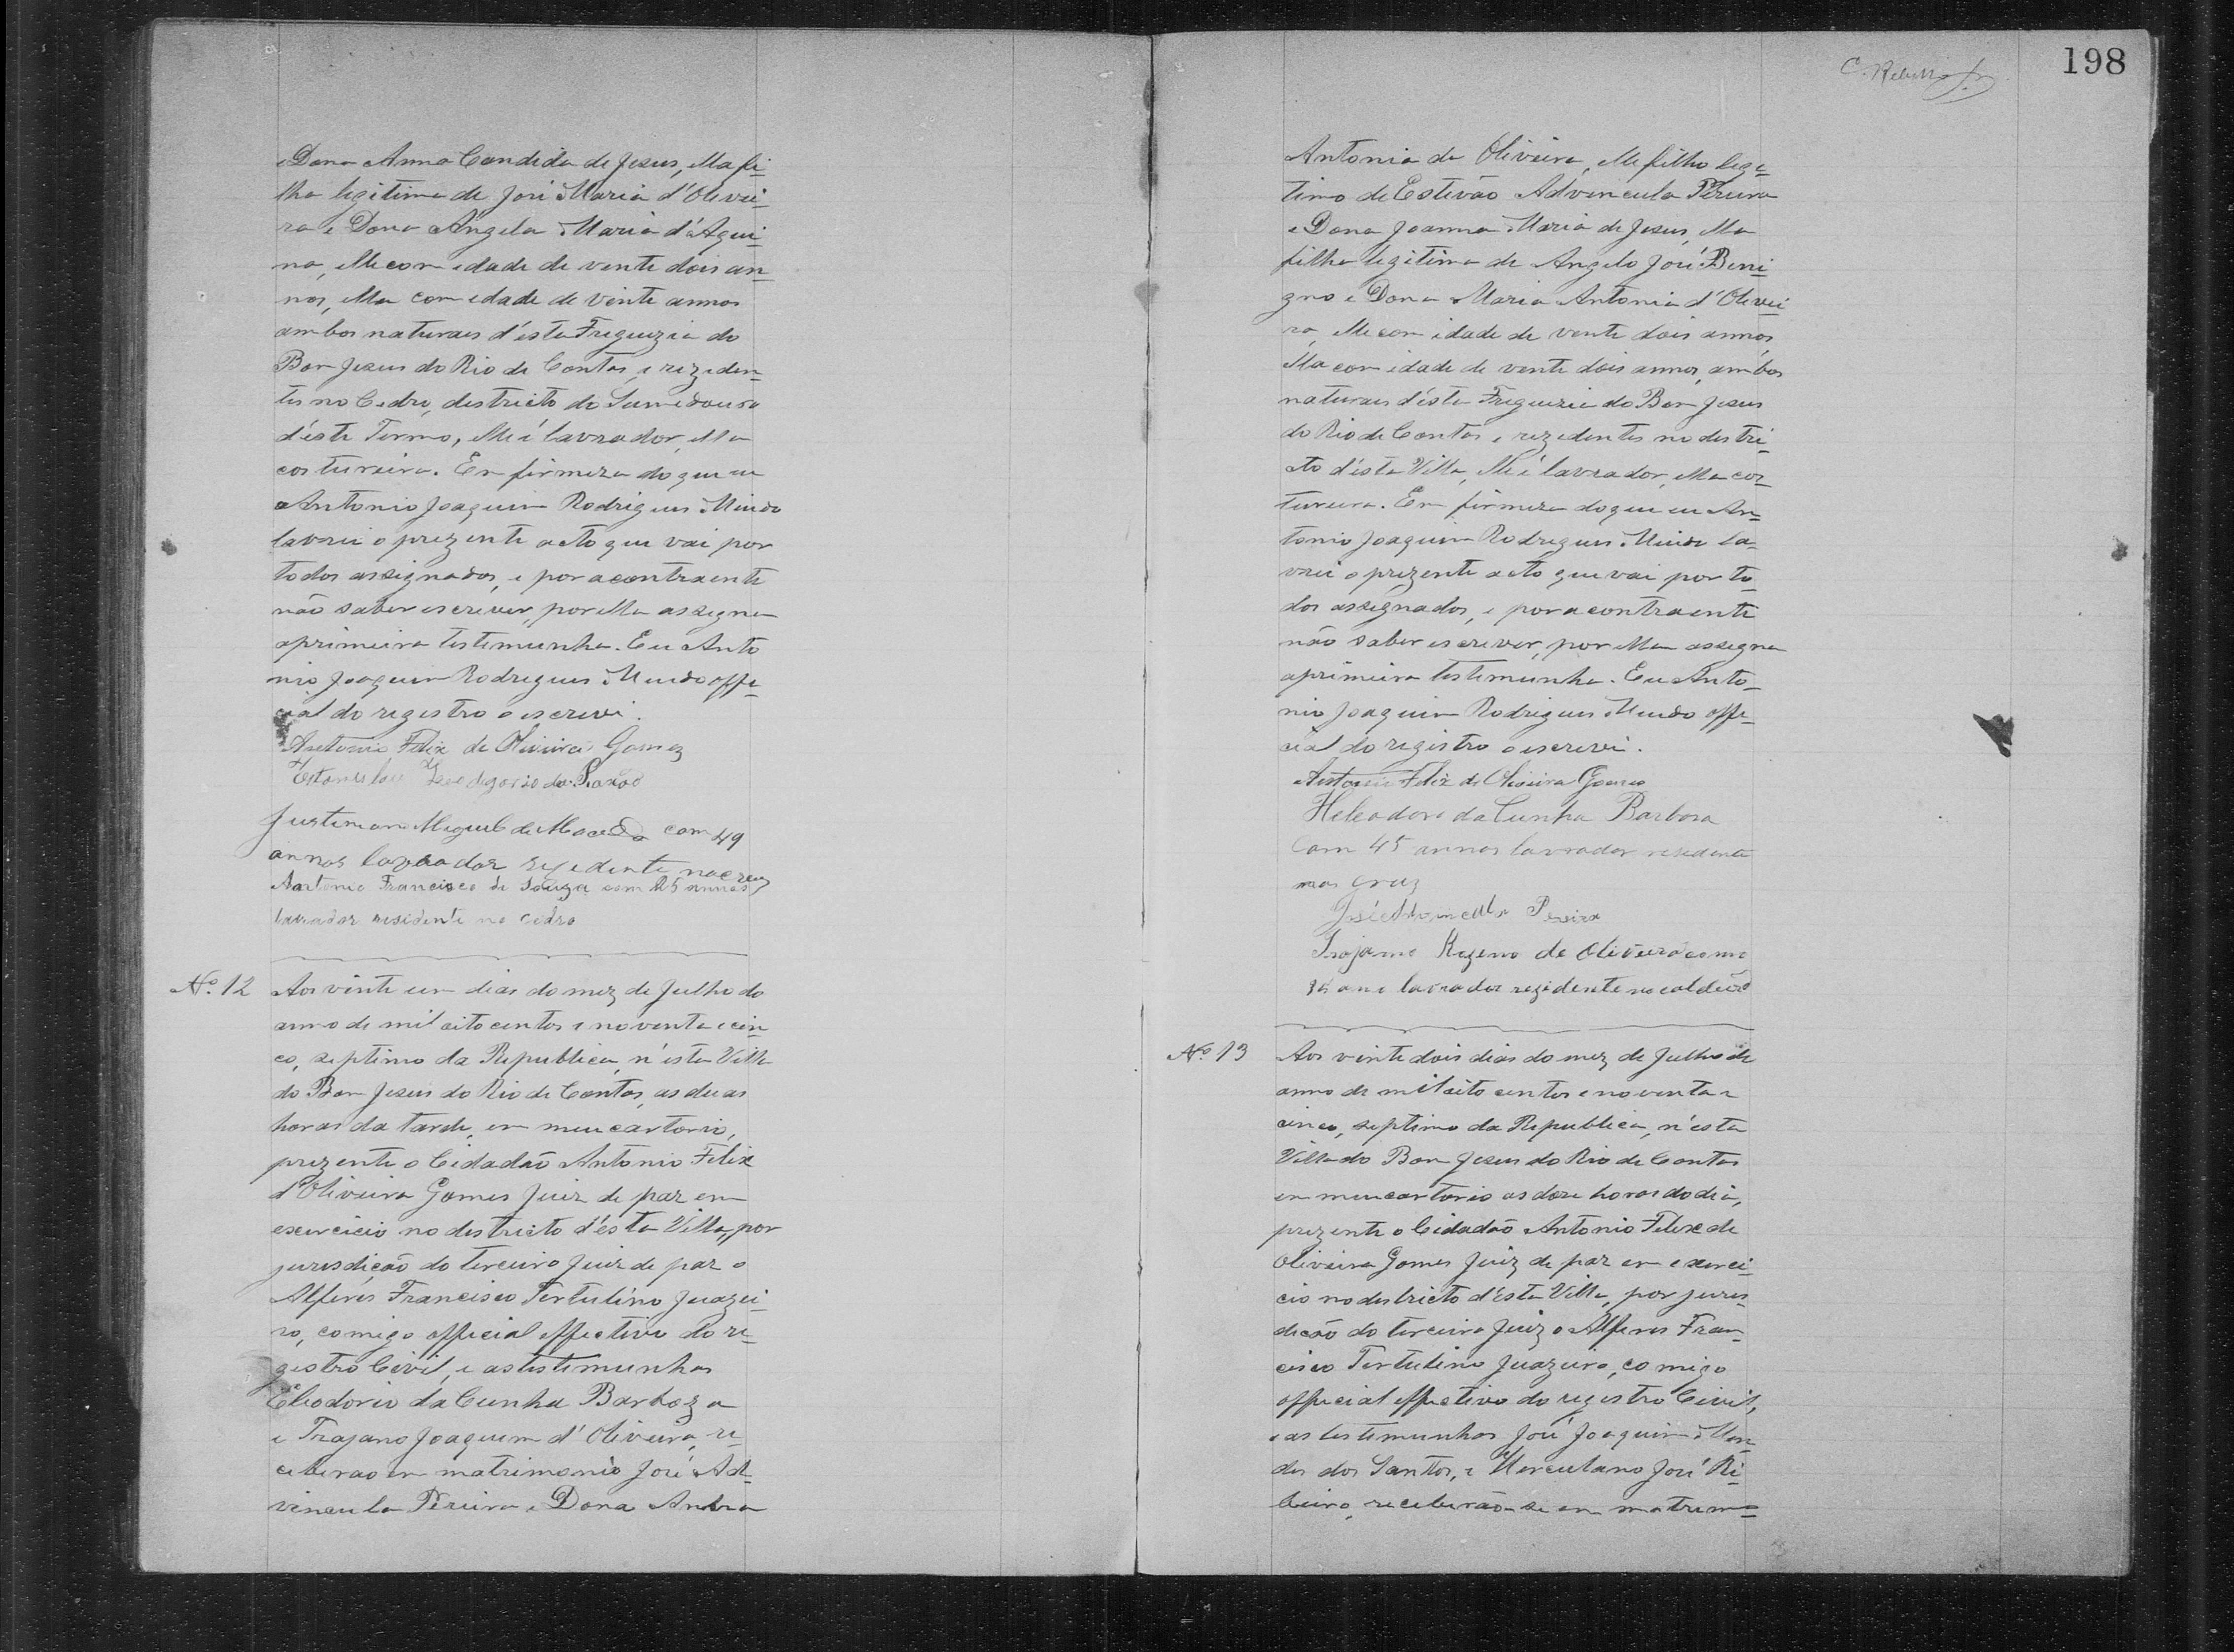 e Dona Anna Candida de Jesus, ella fi-
lha legitima de José Maria d'Olivei-
ra e Dona Angela Maria d'Aqui-
no, elle com edade de vente dois an-
nos, ella com edade de vente annos
ambos naturaes d'ésta Freguezia do
Bom Jesus do Rio de Contas, e reziden-
tes no Cedro, destricto do Sumidouro
d'éste Termo, elle é lavrador, ella
costureira. Em firmeza do que eu
Antonio Joaquim Rodrigues Mindo
lavrei o prezente acto que vai por
todos assignados, e por a contraente
não saber escrever, por ella assigna
a primeira testemunha. Eu Anto
nio Joaquim Rodrigues Mindo offi-
cial do registro o escrevi.
Antonio Felix de Oliveira Gomes
Estanislau Leodegario da Paixão
Justiniano Miguel de Macedo com 49
annos lavrador rezedente na cruz
Antonio Francisco de Souza com 25 annos
lavrador residente no cedro
Nº 12 Aos vinte um dias do mez de Julho do
anno de mil oito centos e noventa e cin
co, septimo da Republica, n'ésta Villa
do Bom Jesus do Rio de Contas, as duas
horas da tarde, em meu cartorio,
prezente o Cidadão Antonio Felix
d'Oliveira Gomes Juiz de paz em
exercicio no destricto d'ésta Villa, por
jurisdição do terceiro Juiz de paz o
Alferes Francisco Tertulino Juazei-
ro, comigo official effectivo do re-
gistro Civil, e as testemunhas
Eleodorio da Cunha Barboza
e Trajano Joaquim d'Oliveira, re-
ceberao em matrimonio José Ad-
vincula Pereira e Dona Anna
198
Antonia de Oliveira, elle filho lege-
timo de Estevão Advencula Pereira
e Dona Joanna Maria de Jesus, ella
filha legitima de Angelo José Beni-
gno e Dona Maria Antonia d'Olivei-
ra, elle com idade de vente dois annos,
ella com idade de vente dois annos, ambos
naturaes d'ésta Freguezia do Bom Jesus
do Rio de Contas e rezedentes no destri-
cto d'ésta Villa, elle é lavrador, ella cos-
tureira. Em firmeza do que eu An-
tonio Joaquim Rodrigues Mindo la-
vrei o prezente acto que vai por to-
dos assegnados, e por a contraente
não saber escrever, por ella assegna
a primeira testemunha. Eu Anto-
nio Joaquim Rodrigues Mindo offi-
cial do registro o escrevi.
Antonio Felix de Oliveira Gomes
Heleodoro da Cunha Barbosa
com 45 annos lavrador residente
nas cruz
José Advincula Pereira
Trajano de Oliveira com
lavrador rezidente no caldeirão
Nº 13 Aos vinte dois dias do mez de Julho de
anno de mil oito centos e noventa e
cinco, septimo da Republica, n'ésta
Villa do Bom Jesus do Rio de Contas
em meu cartorio as doze horas do dia,
prezente o Cidadão Antonio Felix de
Oliveira Gomes Juiz de paz em exerci-
cio no destricto d'ésta Villa, por juris-
dicão do terceiro Juiz o Alferes Fran-
cisco Tertulino Juazeiro, comigo
official effectivo do registro Civil,
e as testemunhas José Joaquim Men-
des dos Santos, e Herculano José Ri-
beiro, receberão-se em matrimo-